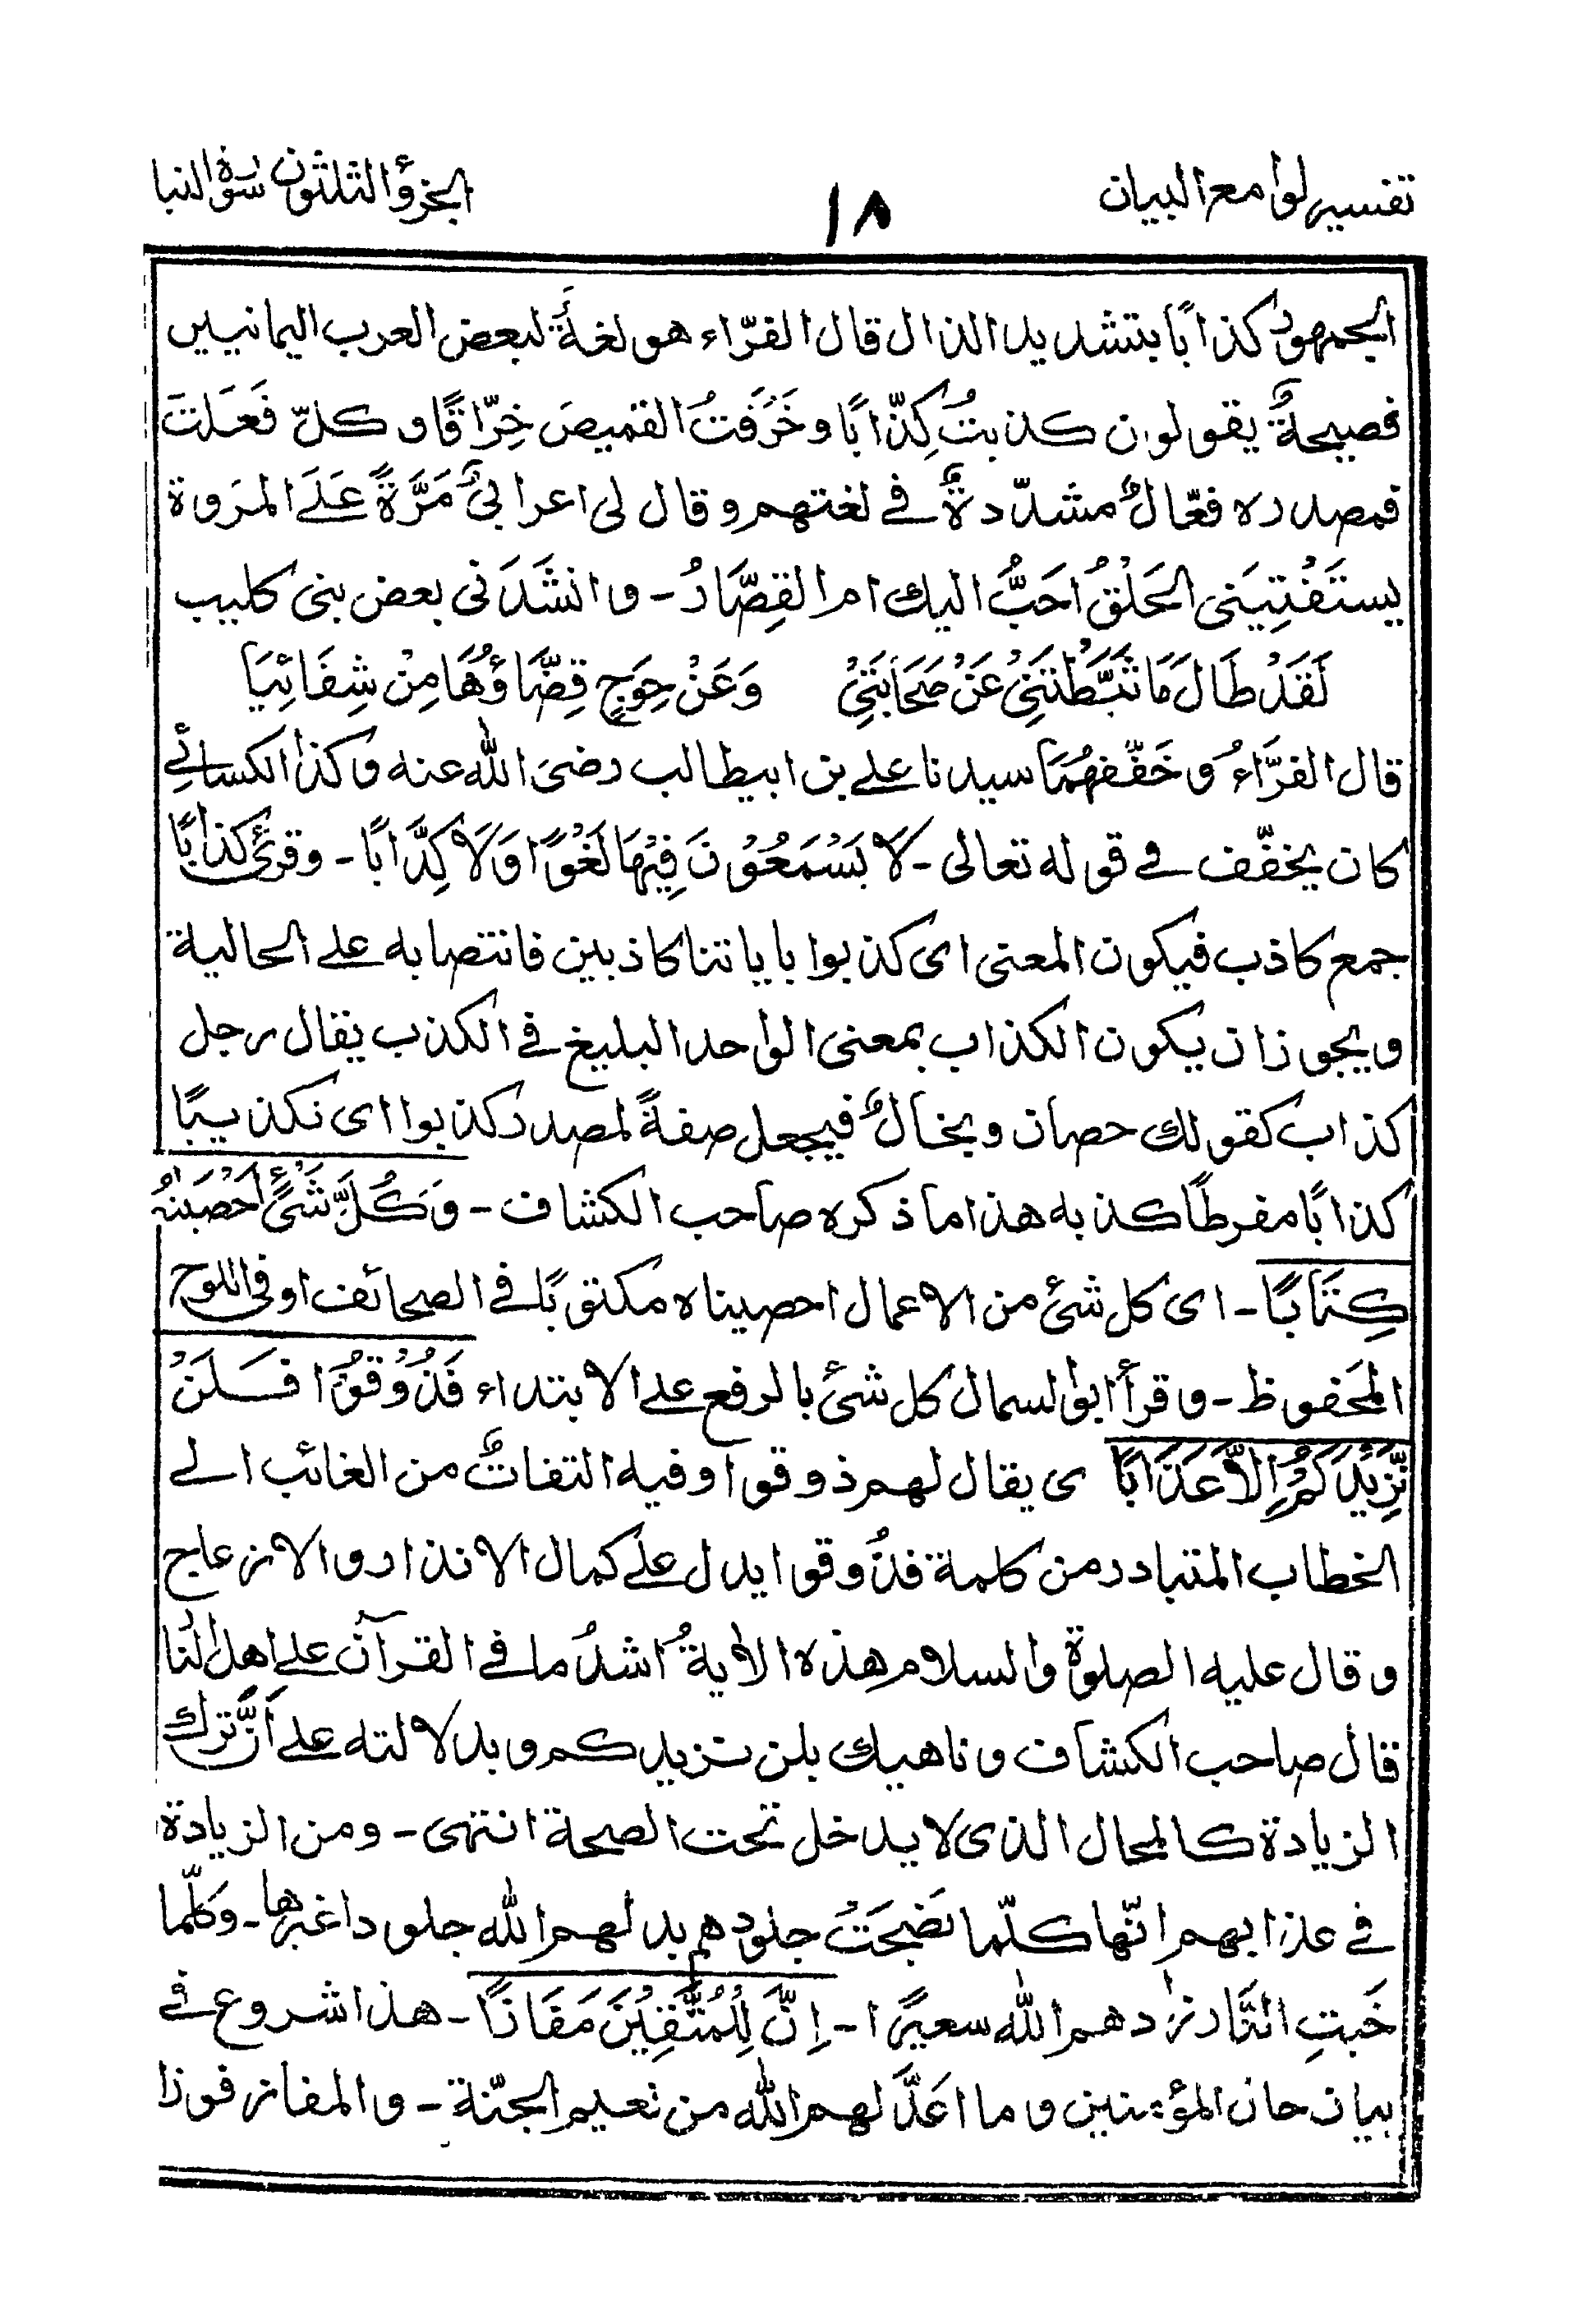 تفسير لوامع البيان
١٨
الجزؤ الثلثون سورة النبا
الجمهور كذابًا بتشديد الذال قال الفرّاء هو لغةٌ لبعض العرب اليمانيين
فصيحةٌ يقولون كذبتُ كِذّابًا وخَرَقتُ القميصَ خِرّاقًا وكلّ فَعَلتَ
فمصدره فعّالٌ مشدّدةٌ في لغتهم وقال لى اعرابىٌ مَرَّةً عَلَى المَروة
يستَفْتِيَنى الحَلْقُ احَبُّ اليك ام القِصَّارُ - وانشَدَنى بعض بنى كليب
لَقَدْ طَالَ مَا ثَبَّطْتَنِىْ عَنْ صَحَابَتِىْ وَعَنْ حِوَجٍ قِضَّاؤُهَا مِنْ شِفَائِيَا
قال الفرَّاءُ وخَفّفهُمَا سيدنا على بن ابيطالب رضى الله عنه وكذا الكسائى
كان يخفّف فى قوله تعالى - لَا يَسْمَعُوْنَ فِيْهَا لَغْوًا وَلَا كِذَّابًا - وقرئ كذابًا
جمع كاذب فيكون المعنى اى كذبوا باياتنا كاذبين فانتصابه على الحالية
ويجوز ان يكون الكذاب بمعنى الواحد البليغ فى الكذب يقال رجل
كذاب كقولك حصان وبخالٌ فيجعل صفةً لمصدر كذبوا اى تكذيبًا
كذابًا مفرطًا كذبه هذا ما ذكره صاحب الكشاف - وَكُلَّ شَىْءٍ اَحْصَيْنٰهُ
كِتَابًا - اى كل شئ من الاعمال احصيناه مكتوبًا فى الصحائف او فى اللوح
المَحفوظ - وقرأ ابو السمال كل شئ بالرفع على الابتداء فَذُوْقُوْا فَلَنْ
نَّزِيْدَكُمْ اِلَّا عَذَابًا ى يقال لهم ذوقوا وفيه التفاتٌ من الغائب الى
الخطاب المتبادر من كلمة فذوقوا يدل على كمال الانذار والازعاج
وقال عليه الصلوة والسلام هذه الاٰيةُ اشدُ ما فى القرآن على اهل النا
قال صاحب الكشاف وناهيك بلن نزيدكم وبدلالته على أنَّ ترك
الزيادة كالمحال الذى لا يدخل تحت الصحة انتهى - ومن الزيادة
فى عذابهم انّها كلّما نضجَتْ جلودهم بدلهم الله جلودا غيرها - وكلّما
خَبتِ النَّار زادهم الله سعيرًا - اِنَّ لِلْمُتَّقِيْنَ مَفَازًا - هذا شروع فى
بيان حال المؤمنين وما اعَدَّ لهم الله من نعيم الجنّة - والمفاز فوزا